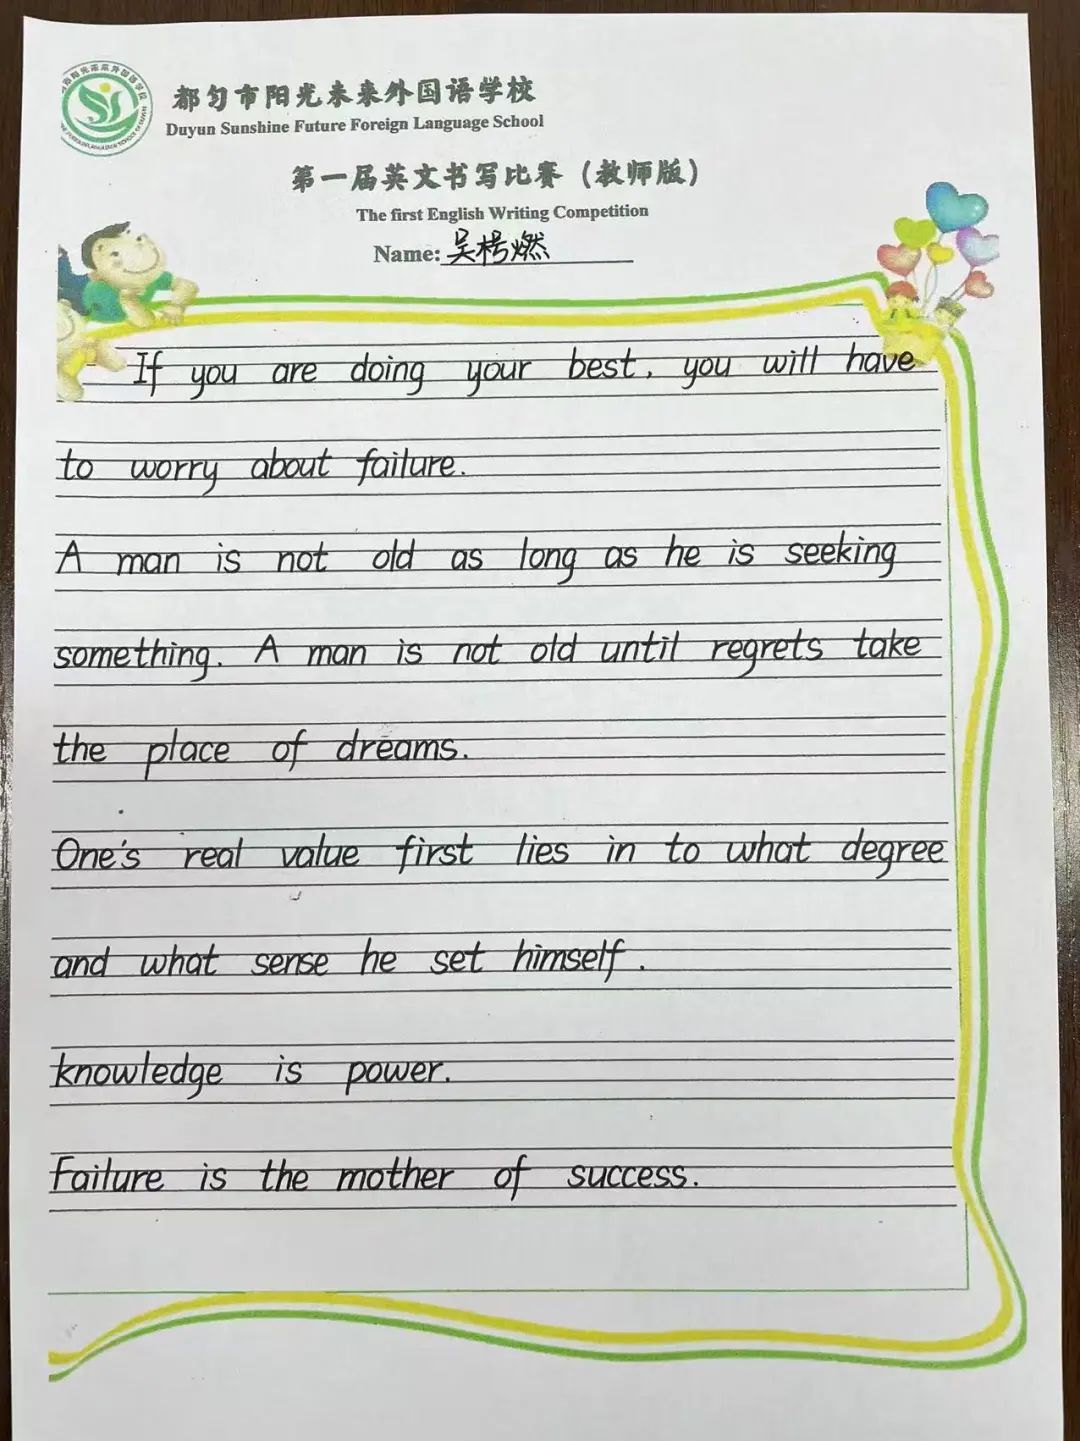 都匀市阳光未来外国语学校
Duyun Sunshine Future Foreign Language School
第一届英文书写比赛（教师版）
The first English Writing Competition
Name: 吴 燃
If you are doing your best, you will have
to worry about failure.
A man is not old as long as he is seeking
something. A man is not old until regrets take
the place of dreams.
One's real value first lies in to what degree
and what sense he set himself.
knowledge is power.
Failure is the mother of success.